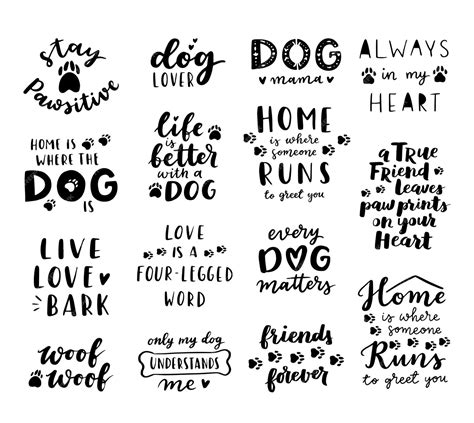 stay
Pawsitive
dog
LOVER
DOG
mama
ALWAYS
in my
HEART
HOME IS
WHERE THE
DOG
IS
life
is
better
with a
DOG
HOME
is where
someone
RUNS
to greet you
a TRUE
Friend
Leaves
paw prints
on your
Heart
LIVE
LOVE
BARK
LOVE
IS A
FOUR-LEGGED
WORD
every
DOG
matters
Home
is where
someone
Runs
to greet you
woof
woof
only my dog
UNDERSTANDS
me
friends
forever